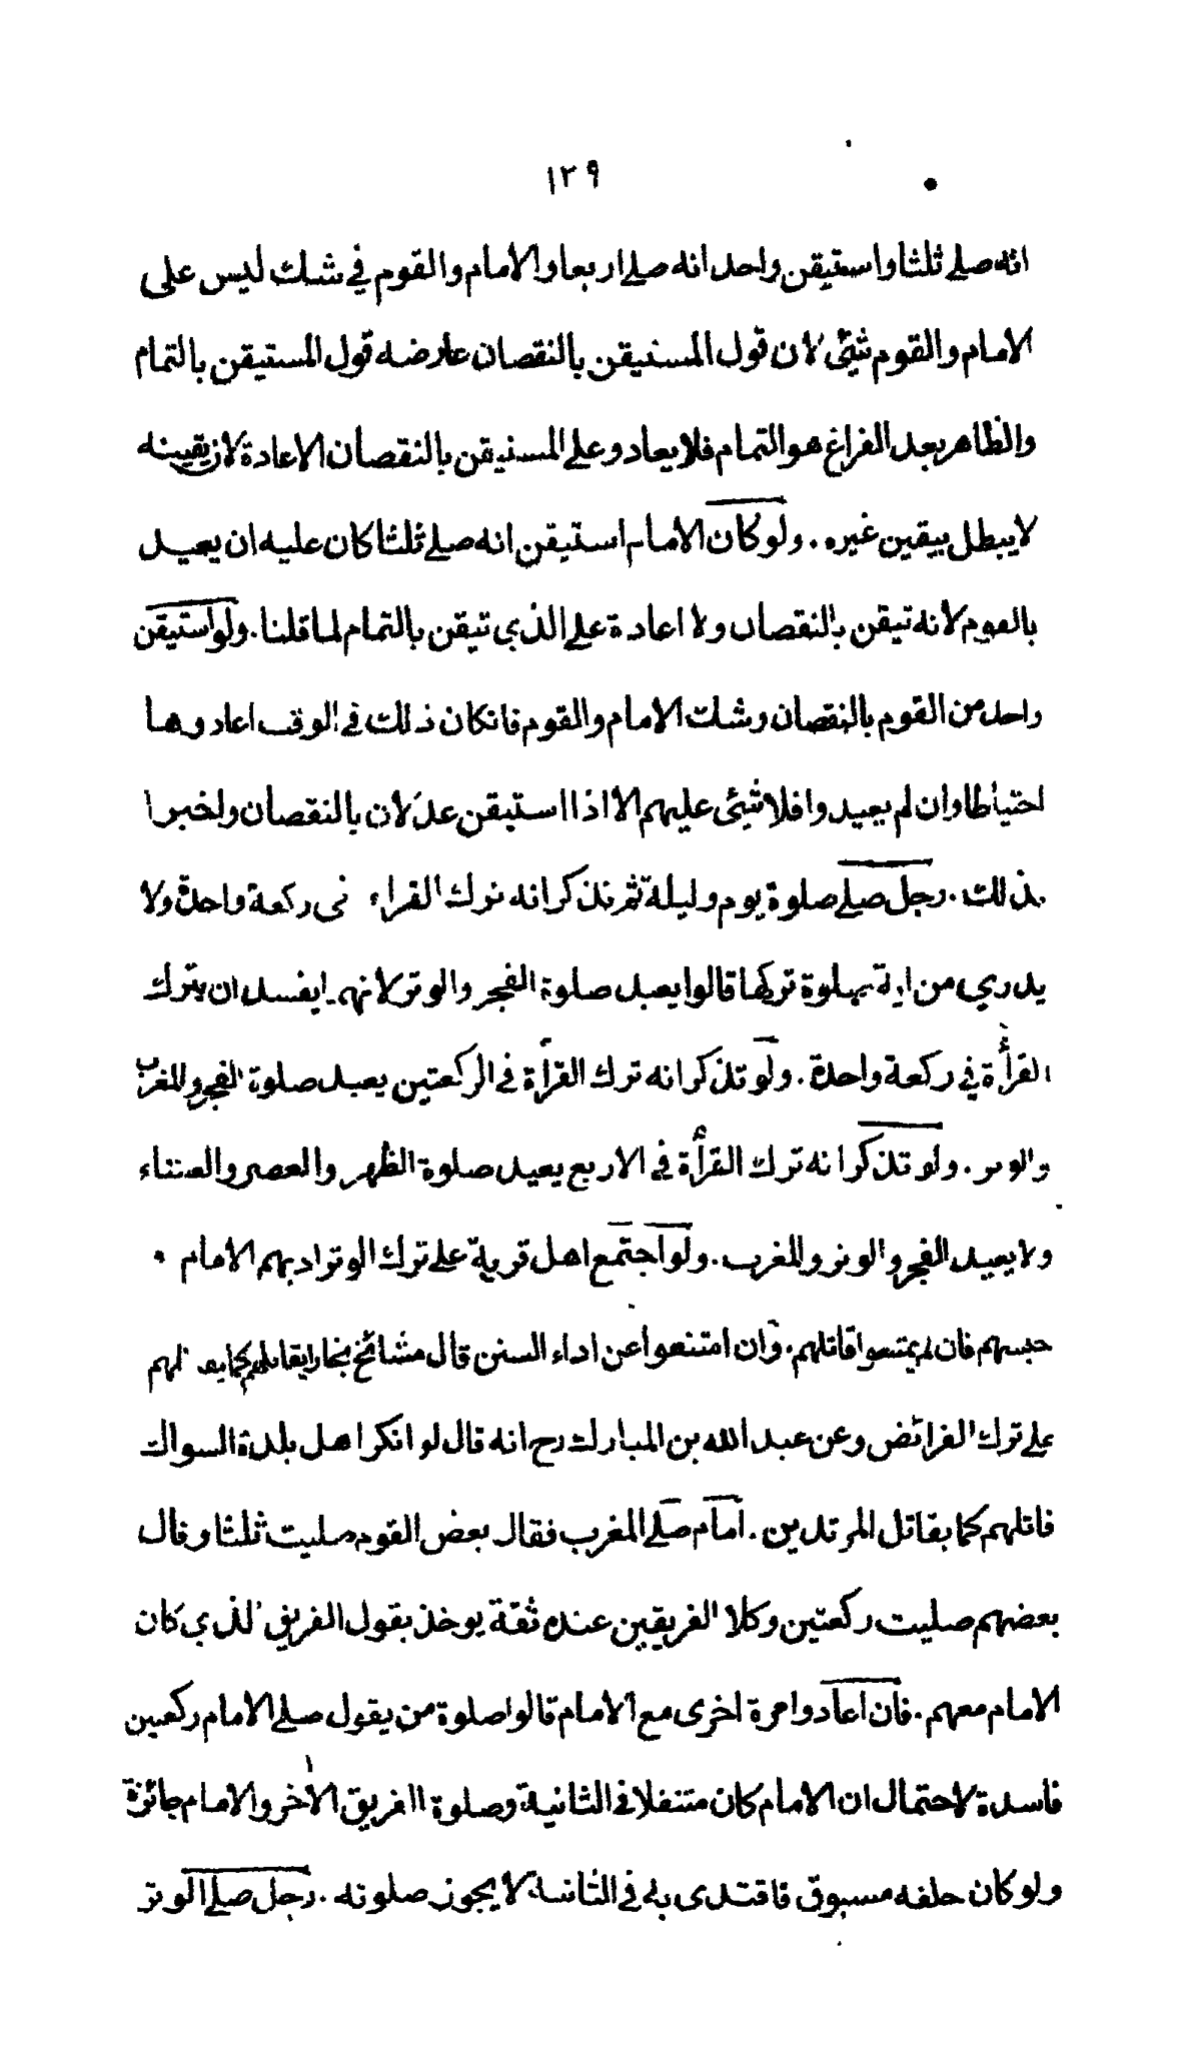 ١٢٩
انه صلے ثلثا واستيقن واحد انه صلے اربعا والامام والقوم في شك ليس على
الامام والقوم شيئ لان قول المستيقن بالنقصان عارضه قول المستيقن بالتمام
والظاهر بعد الفراغ هو التمام فلا يعاد وعلے المستيقن بالنقصان الاعادة لان يقينه
لا يبطل بيقين غيره . ولو كان الامام استيقن انه صلے ثلثا كان عليه ان يعيد
بالقوم لانه تيقن بالنقصان ولا اعادة علے الذي تيقن بالتمام لما قلنا . ولو استيقن
واحد من القوم بالنقصان وشك الامام والقوم فانكان ذلك في الوقت اعادوها
احتياطا وان لم يعيدوا فلا شيئ عليهم الا اذا استيقن عدلان بالنقصان واخبرا
بذلك . رجل صلے صلوة يوم وليلة ثم تذكر انه ترك القراءة في ركعة واحدة ولا
يدري من اية صلوة تركها قالوا يعيد صلوة الفجر والوتر لانهما يفسدان بترك
القرأة في ركعة واحدة . ولو تذكر انه ترك القرأة في الركعتين يعيد صلوة الفجر والمغرب
والوتر . ولو تذكر انه ترك القرأة في الاربع يعيد صلوة الظهر والعصر والعشاء
ولا يعيد الفجر والوتر والمغرب . ولو اجتمع اهل قرية علے ترك الوتر ادبهم الامام •
حبسهم فان لم يمتنعوا قاتلهم . وان امتنعوا عن اداء السنن قال مشائخ بخارا يقاتلهم كما يقاتلهم
علے ترك الفرائض وعن عبد الله بن المبارك رح انه قال لو انكر اهل بلدة السواك
قاتلهم كما يقاتل المرتدين . امام صلے المغرب فقال بعض القوم صليت ثلثا وقال
بعضهم صليت ركعتين وكلا الفريقين عنده ثقة يوخذ بقول الفريق الذي كان
الامام معهم . فان اعادوا مرة اخرى مع الامام قالوا صلوة من يقول صلے الامام ركعتين
فاسدة لاحتمال ان الامام كان متنفلا في الثانية وصلوة الفريق الأخر والامام جائزة
ولو كان خلفه مسبوق فاقتدى به في الثانية لا يجوز صلوته . رجل صلے الوتر